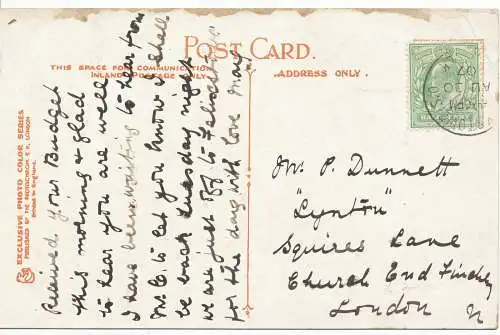 POST CARD.
THIS SPACE FOR COMMUNICATION
INLAND POSTAGE ONLY.
ADDRESS ONLY.
EXCLUSIVE PHOTO COLOR SERIES
PUBLISHED BY THE PHOTOCHROM Co LONDON
Received your Budget
this morning & glad
to hear you are well
I have been waiting to hear from
Mr C. to let you know I shall
be back Tuesday night
we are just off to Felixstowe
for the day with love May
Mr P. Dunnett
"Lynton"
Squires Lane
Church End Finchley
London N